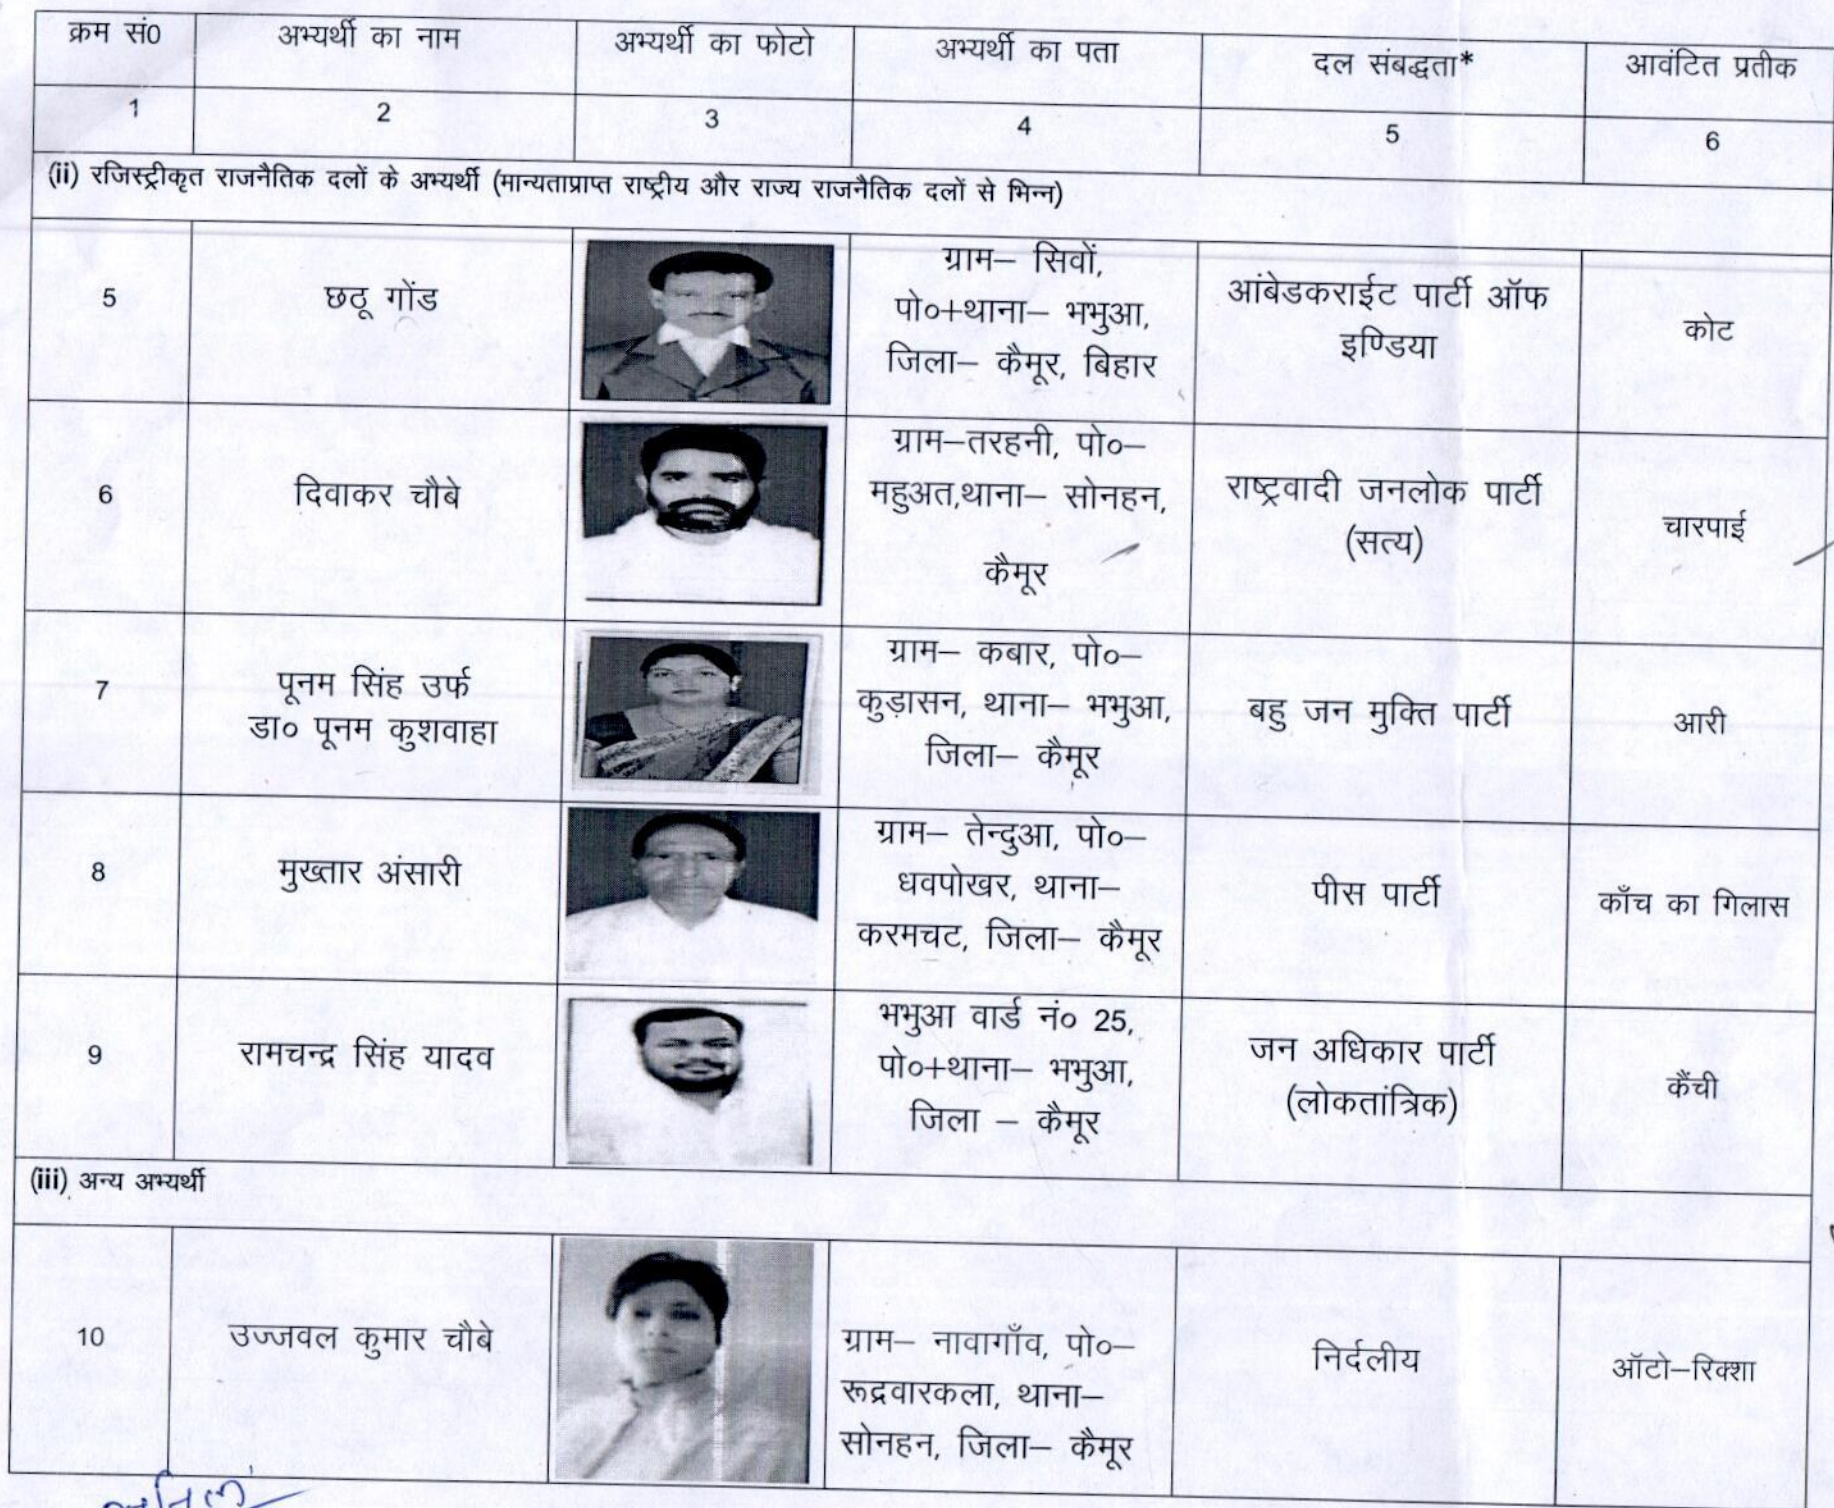 क्रम सं0 अभ्यर्थी का नाम अभ्यर्थी का फोटो अभ्यर्थी का पता दल संबद्धता* आवंटित प्रतीक
1 2 3 4 5 6
(ii) रजिस्ट्रीकृत राजनैतिक दलों के अभ्यर्थी (मान्यताप्राप्त राष्ट्रीय और राज्य राजनैतिक दलों से भिन्न)
5
छठू गोंड
ग्राम– सिवों,
पो०+थाना– भभुआ,
जिला– कैमूर, बिहार
आंबेडकराईट पार्टी ऑफ
इण्डिया
कोट
6
दिवाकर चौबे
ग्राम–तरहनी, पो०–
महुअत,थाना– सोनहन,
कैमूर
राष्ट्रवादी जनलोक पार्टी
(सत्य)
चारपाई
7
पूनम सिंह उर्फ
डा० पूनम कुशवाहा
ग्राम– कबार, पो०–
कुड़ासन, थाना– भभुआ,
जिला– कैमूर
बहु जन मुक्ति पार्टी
आरी
8
मुख्तार अंसारी
ग्राम– तेन्दुआ, पो०–
धवपोखर, थाना–
करमचट, जिला– कैमूर
पीस पार्टी
काँच का गिलास
9
रामचन्द्र सिंह यादव
भभुआ वार्ड नं० 25,
पो०+थाना– भभुआ,
जिला – कैमूर
जन अधिकार पार्टी
(लोकतांत्रिक)
कैंची
(iii) अन्य अभ्यर्थी
10
उज्जवल कुमार चौबे
ग्राम– नावागाँव, पो०–
रूद्रवारकला, थाना–
सोनहन, जिला– कैमूर
निर्दलीय
ऑटो–रिक्शा